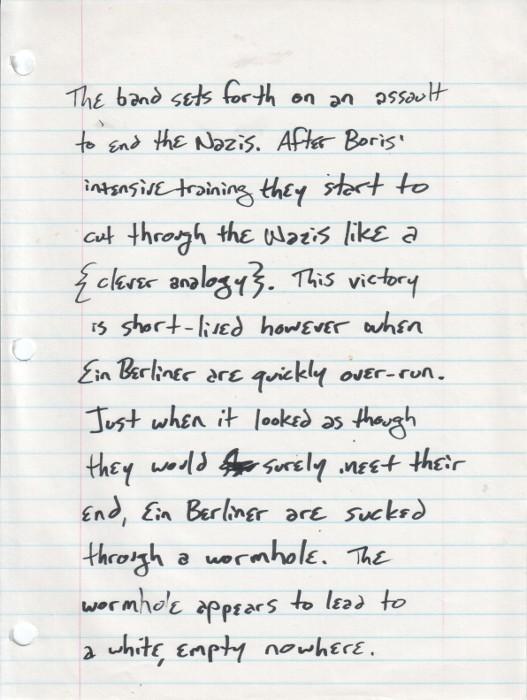 The band sets forth on an assault
to end the Nazis. After Boris'
intensive training they start to
cut through the Nazis like a
{clever analogy}. This victory
is short-lived however when
Ein Berliner are quickly over-run.
Just when it looked as though
they would surely meet their
end, Ein Berliner are sucked
through a wormhole. The
wormhole appears to lead to
a white, empty nowhere.